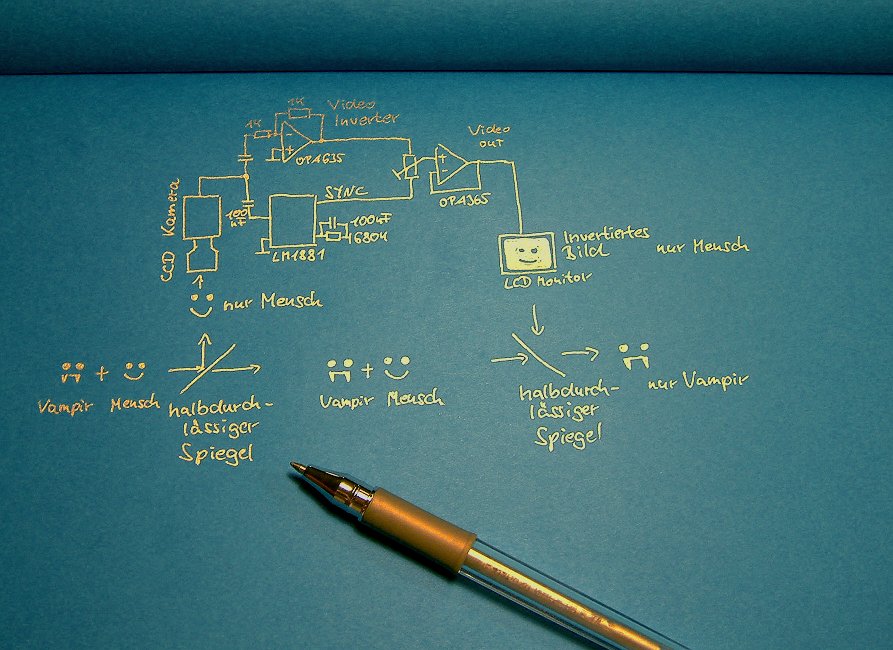 1K
Video
Inverter
1K
OPA635
Video
out
OPA365
CCD Kamera
100
nF
SYNC
100nF
680K
LM1881
Invertiertes
Bild
nur Mensch
LCD Monitor
nur Mensch
Vampir
+
Mensch
halbdurch-
lässiger
Spiegel
Vampir
+
Mensch
halbdurch-
lässiger
Spiegel
nur Vampir